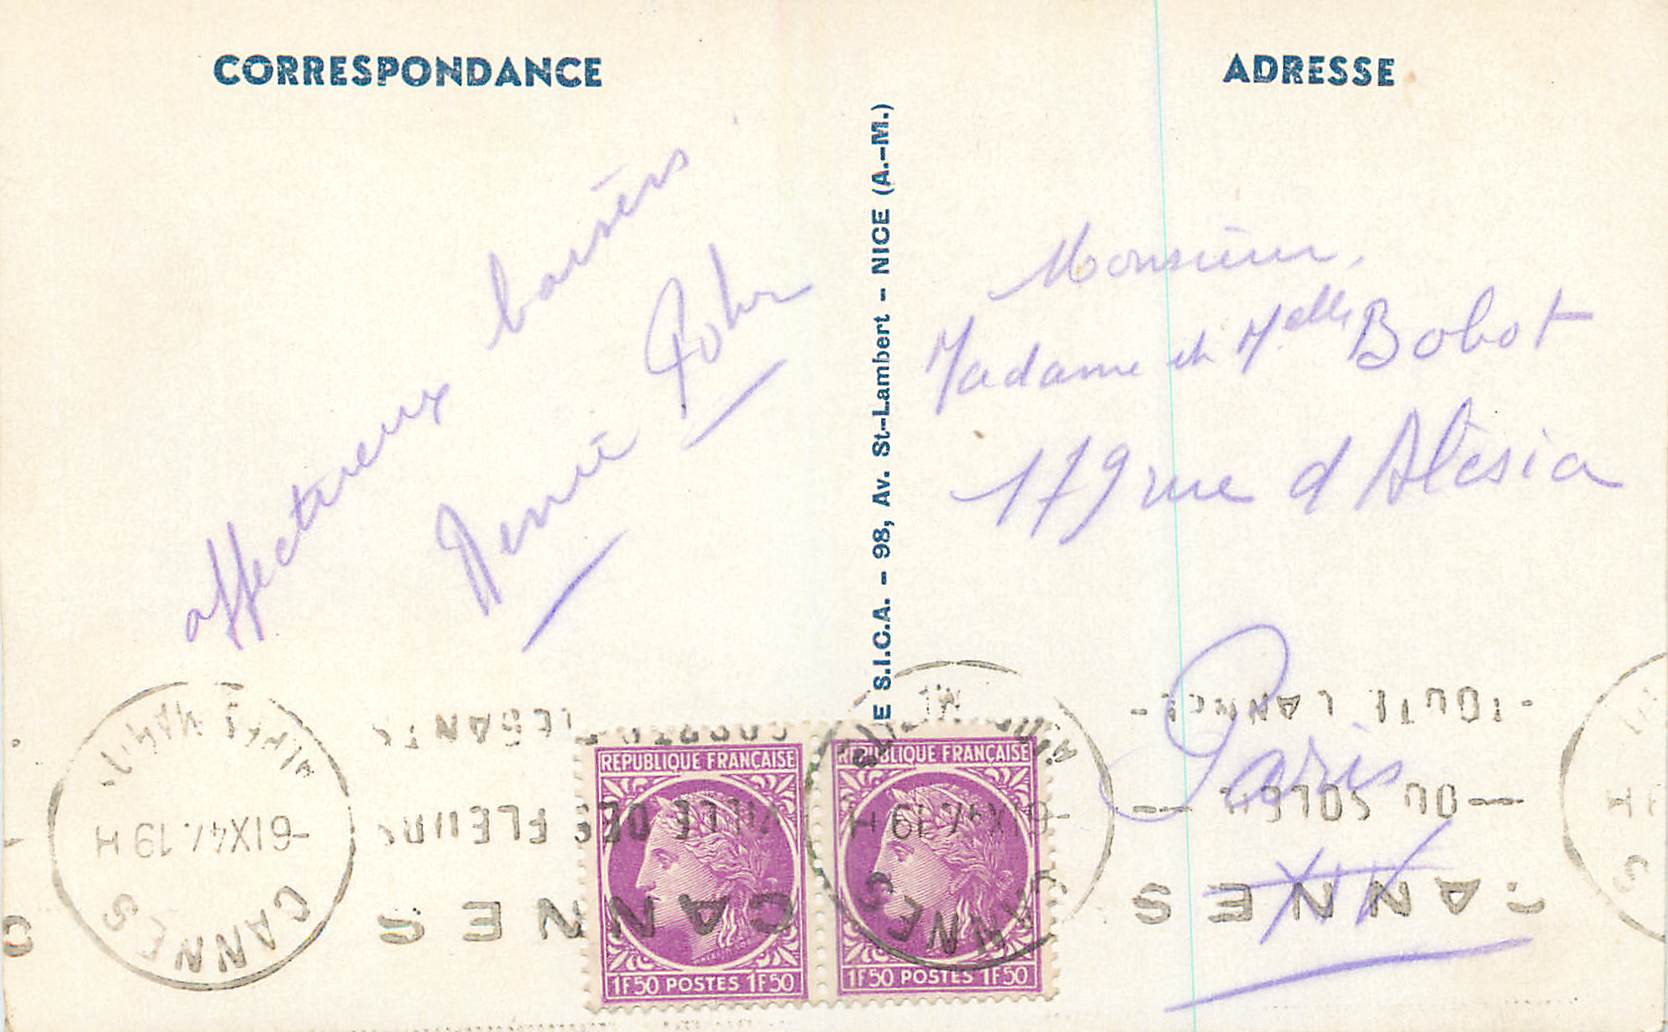 CORRESPONDANCE
affectueux baisers
ADRESSE
E S.I.C.A. - 98, Av. St-Lambert - NICE (A.-M.)
Monsieur,
Madame et Melle Bobot
179 rue d'Alésia
Paris
XIV
RÉPUBLIQUE FRANÇAISE
1F50 POSTES 1F50
RÉPUBLIQUE FRANÇAISE
1F50 POSTES 1F50
CANNES
ALPES MARIT.
19 H -6 IX 47
CANNES
VILLE DES FLEURS
SPORTS ELEGANTS
CANNES
DU SOLEIL
TOUTE L'ANNEE
CANNES
19 H -6 IX 47